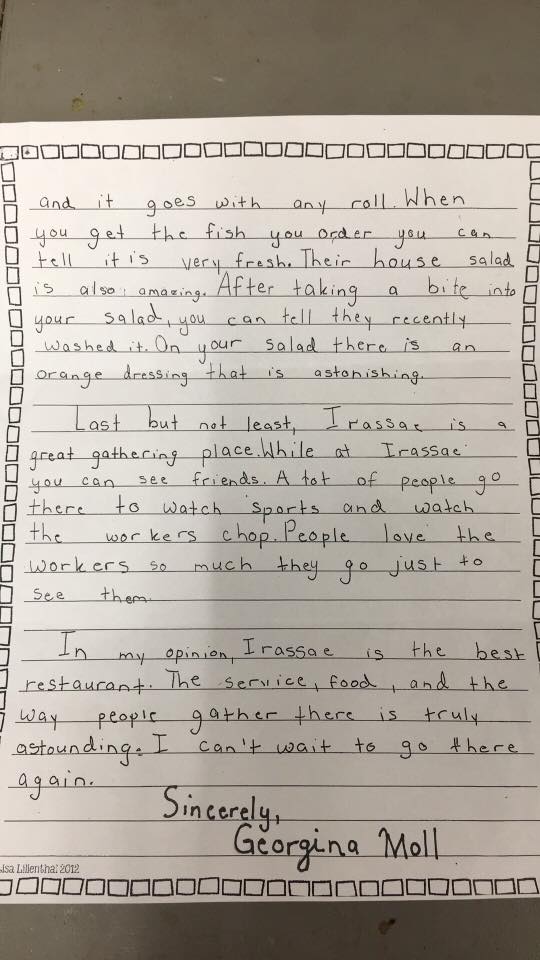 and it goes with any roll. When
you get the fish you order you can
tell it is very fresh. Their house salad
is also amazing. After taking a bite into
your salad, you can tell they recently
washed it. On your salad there is an
orange dressing that is astonishing.
Last but not least, Irassae is a
great gathering place. While at Irassae
you can see friends. A tot of people go
there to watch sports and watch
the workers chop. People love the
workers so much they go just to
see them.
In my opinion, Irassae is the best
restaurant. The service, food, and the
way people gather there is truly
astounding. I can't wait to go there
again.
Sincerely,
Georgina Moll
Lisa Lillenthal 2012